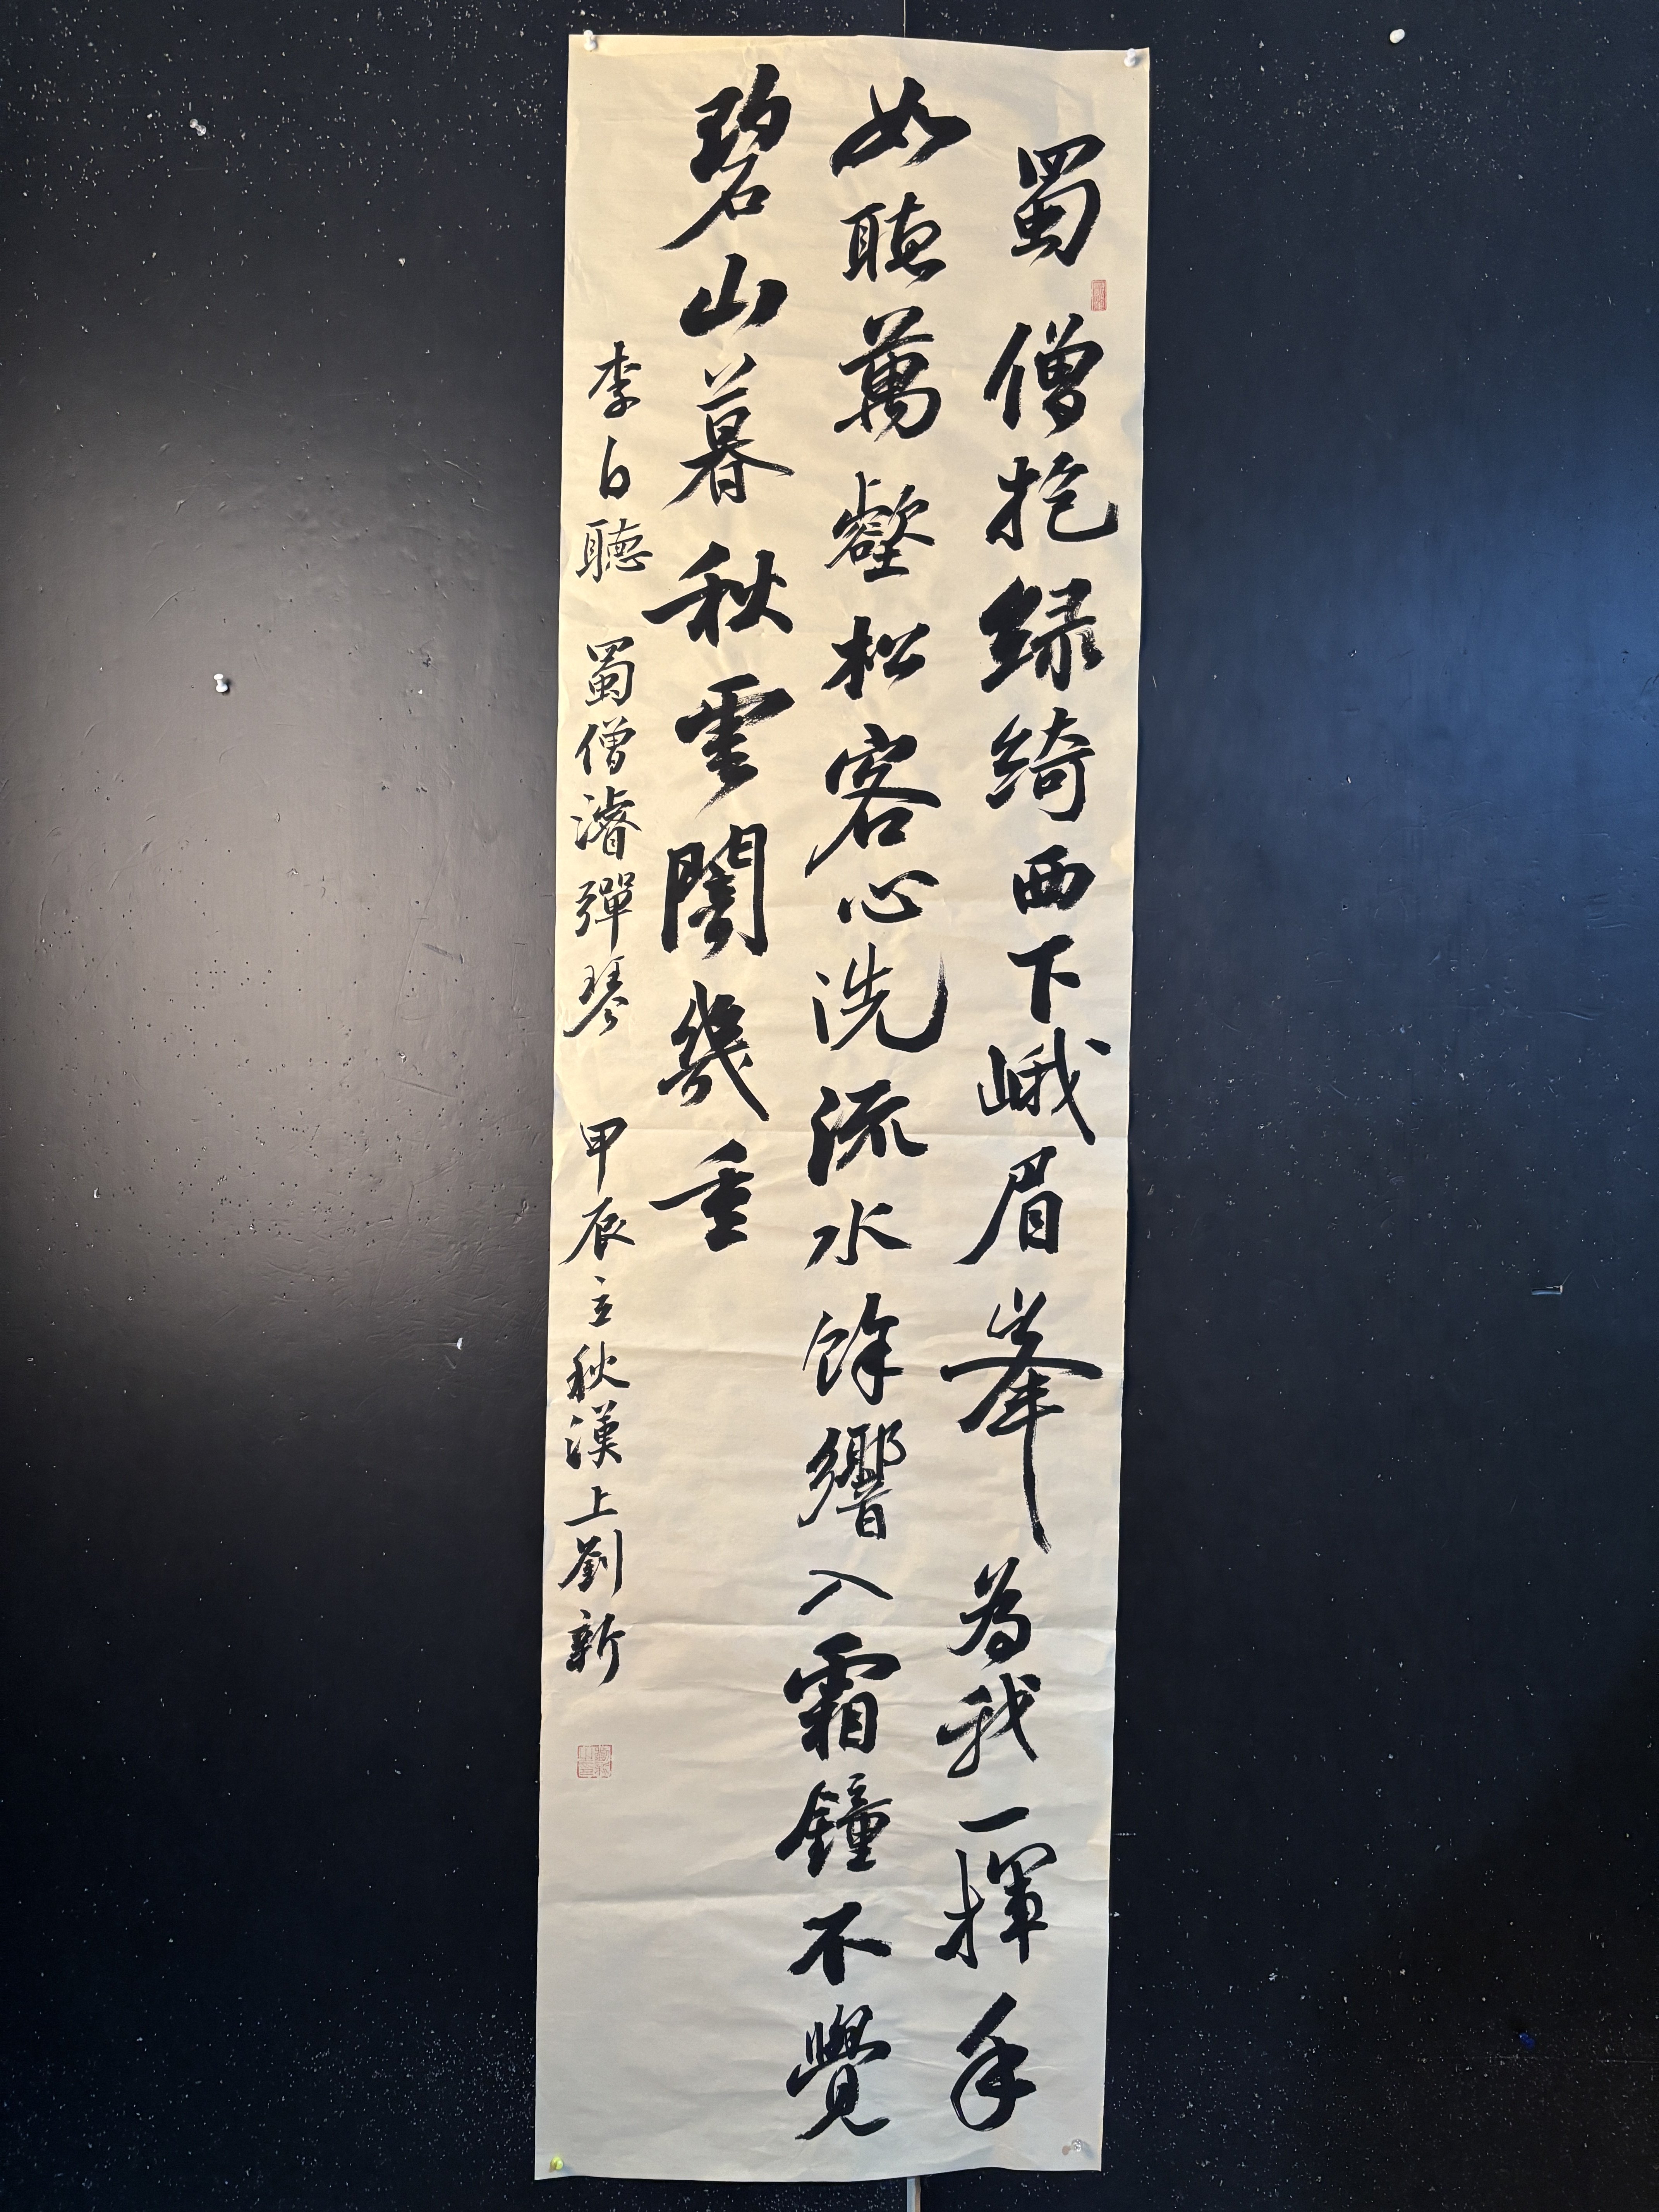 蜀僧抱緑綺西下峨眉峯為我一揮手
如聽萬壑松客心洗流水餘響入霜鐘不覺
碧山暮秋雲闇幾重
李白聽蜀僧濬彈琴 甲辰立秋漢上劉新